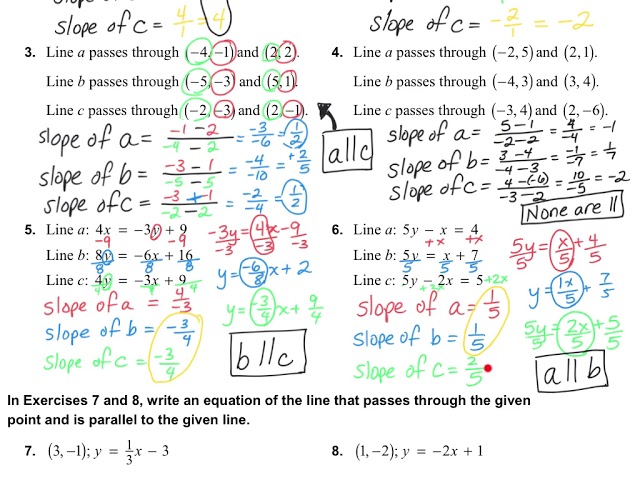 slope of c = 4/1 = 4
slope of c = -2/1 = -2
3. Line a passes through (−4, −1) and (2, 2).
Line b passes through (−5, −3) and (5, 1).
Line c passes through (−2, −3) and (2, −1).
slope of a = -1 - 2 / -4 - 2 = -3/-6 = 1/2
slope of b = -3 - 1 / -5 - 5 = -4/-10 = +2/5
slope of c = -3 + 1 / -2 - 2 = -2/-4 = 1/2
a||c
4. Line a passes through (−2, 5) and (2, 1).
Line b passes through (−4, 3) and (3, 4).
Line c passes through (−3, 4) and (2, −6).
slope of a = 5-1 / -2-2 = 4/-4 = -1
slope of b = 3-4 / -4-3 = -1/-7 = 1/7
slope of c = 4-(-6) / -3-2 = 10/-5 = -2
None are ||
5. Line a: 4x = −3y + 9
-9 -9
Line b: 8y = −6x + 16
8 8 8
Line c: 4y = −3x + 9
4 4 4
-3y = 4x - 9
-3 -3 -3
y = (-6/8)x + 2
y = (-3/4)x + 9/4
slope of a = 4/-3
slope of b = -3/4
slope of c = -3/4
b||c
6. Line a: 5y − x = 4
+x +x
Line b: 5y = x + 7
5 5 5
Line c: 5y − 2x = 5 +2x
+2x
5y/5 = x/5 + 4/5
y = 1x/5 + 7/5
5y/5 = 2x/5 + 5/5
slope of a = 1/5
slope of b = 1/5
slope of c = 2/5
a||b
In Exercises 7 and 8, write an equation of the line that passes through the given
point and is parallel to the given line.
7. (3, −1); y = 1/3x − 3
8. (1, −2); y = −2x + 1